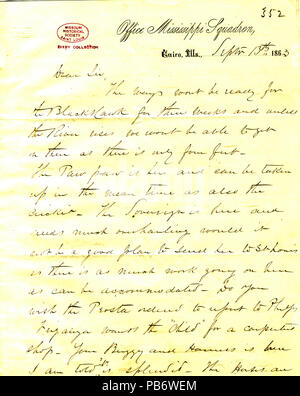 352
MISSOURI
HISTORICAL
SOCIETY
SAINT LOUIS
BIXBY COLLECTION
Office Mississippi Squadron,
Cairo, Ills., Septr 13th 1863
Dear Sir,
The ways wont be ready for
the Black Hawk for three weeks and unless
the River rises we wont be able to get
on them as there is only four feet.
The Paw paw is here and can be taken
up in the mean time as also the
Cricket. The Sovereign is here and
needs much overhauling would it
not be a good plan to send her to St Louis
as there is as much work going on here
as can be accommodated. Do you
wish the Prosta ordered to report to Phelps
wants the "Child" for a carpenter
shop. Your Buggy and Harness is here
I am told is splendid. The Horses are
alamy
Image ID: PB6WEM
www.alamy.com